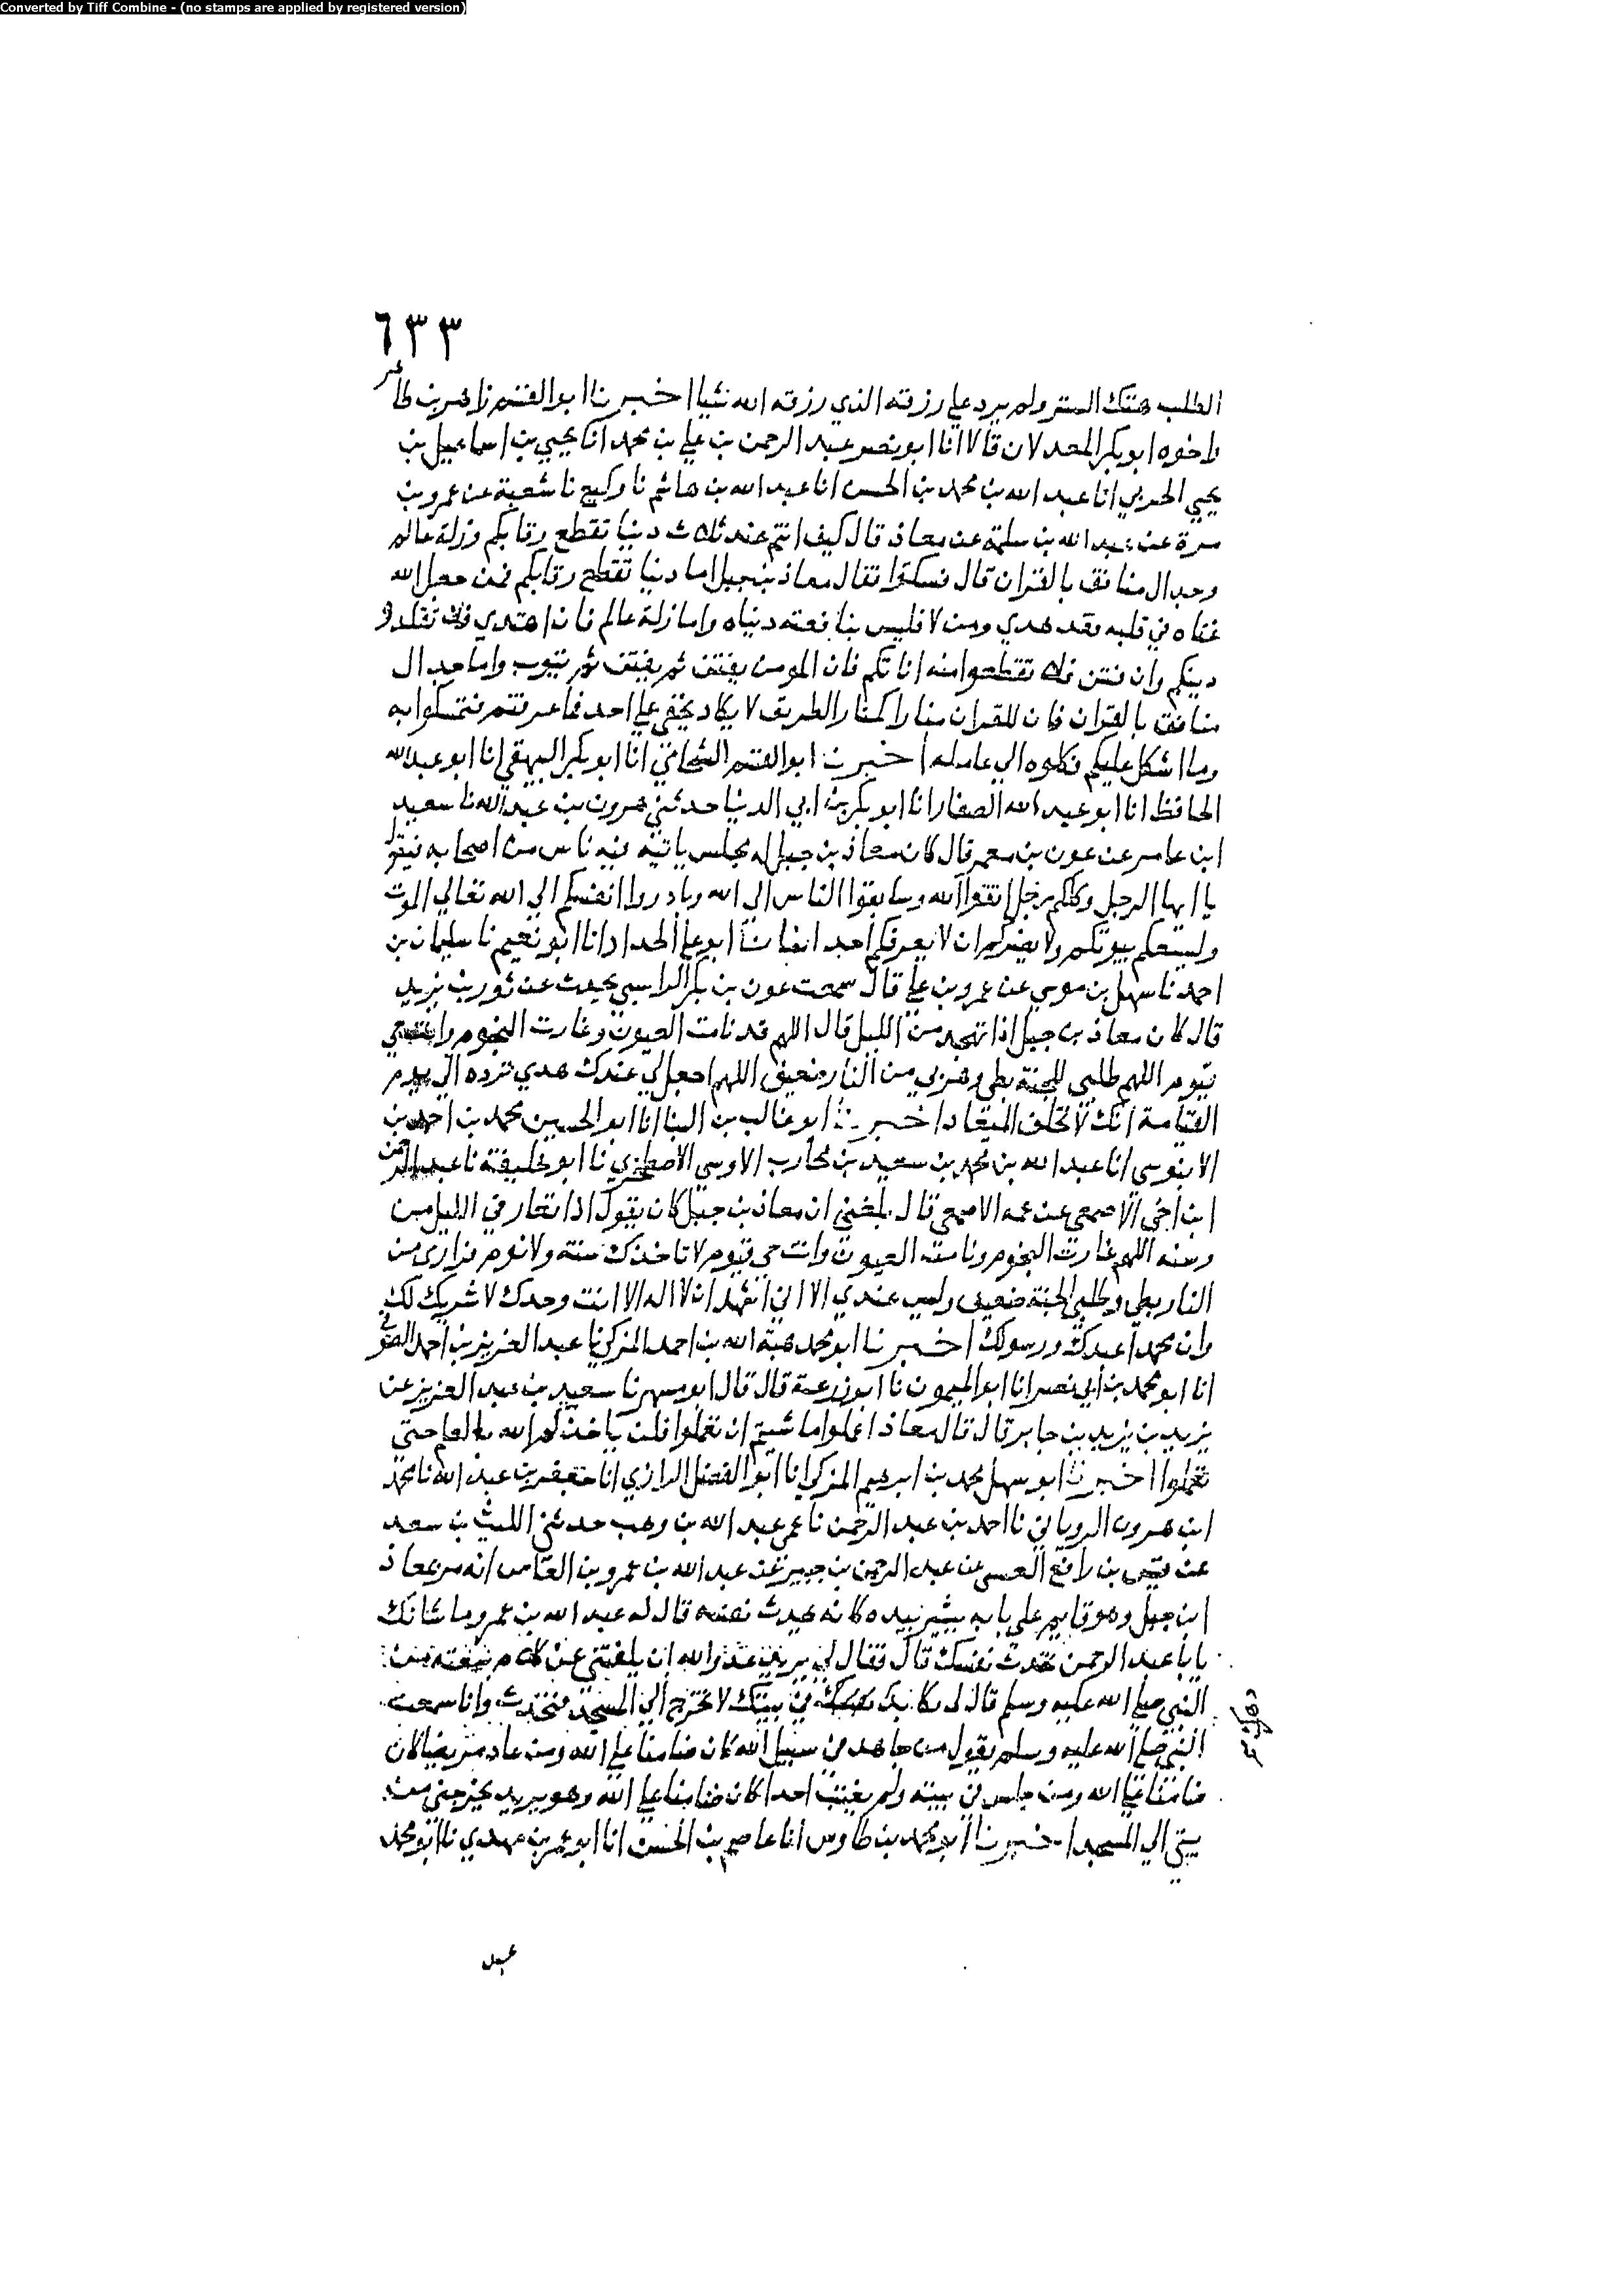 Converted by Tiff Combine - (no stamps are applied by registered version)
٦٣٣
الطلب هتك الستر ولم يرد علي رزقه الذي رزقه الله شيا اخبرنا ابو القسم زاهر بن طاهر
واخوه ابو بكر المعدلان قالا انا ابو نصر عبد الرحمن بن علي بن محمد انا يحيي بن اسماعيل بن
يحيي الحربي انا عبد الله بن محمد بن الحسن انا عبد الله بن هاشم نا وكيع نا شعبة عن عمرو بن
مرة عن عبد الله بن سلمة عن معاذ قال كيف انتم عند ثلاث دنيا تقطع رقابكم وزلة عالم
وجدال منافق بالقران قال فسكتوا فقال معاذ بن جبل اما دنيا تقطع رقابكم فمن جعل الله
غناه في قلبه فقد هدي ومن لا فليس بنافعته دنياه واما زلة عالم فان اهتدي فلا تقلدوه
دينكم وان فتن فلا تقطعوا منه اناتكم فان المومن يفتتن ثم يفتتن ثم يتوب واما جدال
منافق بالقران فان للقران منارا كمنار الطريق لا يكاد يخفي علي احد فما عرفتم فتمسكوا به
وما اشكل عليكم فكلوه الي عامله اخبرنا ابو القسم الشحامي انا ابو بكر البيهقي انا ابو عبد الله
الحافظ انا ابو عبد الله الصفار انا ابو بكر بن ابي الدنيا حدثني هرون بن عبد الله نا سعيد
ابن عامر عن عون بن معمر قال كان معاذ بن جبل له مجلس ياتيه فيه ناس من اصحابه فيقول
يا ايها الرجل وكلكم رجل اتقوا الله وسابقوا الناس الي الله وبادروا انفسكم الي الله تعالي الموت
وليسعكم بيوتكم ولا يضركم ان لا يعرفكم احد انبانا ابو علي الحداد انا ابو نعيم نا سليمان بن
احمد نا سهل بن موسي عن عمرو بن علي قال سمعت عون بن بكر الراسبي يحدث عن ثور بن يزيد
قال كان معاذ بن جبل اذا تهجد من الليل قال اللهم قد نامت العيون وغارت النجوم وانت حي
قيوم اللهم طلبي للجنة بطي وهربي من النار ضعيف اللهم اجعل لي عندك هدي ترده الي يوم
القيامة انك لا تخلف الميعاد اخبرنا ابو غالب بن البنا انا ابو الحسين محمد بن احمد بن
الابنوسي انا عبد الله بن محمد بن سعيد بن محارب الاوسي الاصطخري نا ابو خليفة نا عبد الرحمن
ابن اخي الاصمعي عن عمه الاصمعي قال بلغني ان معاذ بن جبل كان يقول اذا تعار في الليل من
وسنه اللهم غارت النجوم ونامت العيون وانت حي قيوم لا تاخذك سنة ولا نوم فراري من
النار بطي وطلبي الجنة ضعيف وليس عندي الا اني اشهد ان لا اله الا انت وحدك لا شريك لك
وان محمدا عبدك ورسولك اخبرنا ابو محمد هبة الله بن احمد المزكي نا عبد العزيز بن احمد الصوفي
انا ابو محمد بن أبي نصر انا ابو الميمون نا ابو زرعة قال قال ابو مسهر نا سعيد بن عبد العزيز عن
يزيد بن يزيد بن جابر قال قال معاذ اعلموا ما شيتم ان تعلموا فلن ياخذكم الله بالعلم حتي
تعملوا اخبرنا ابو سهل محمد بن ابرهيم المزكي انا ابو الفضل الرازي انا جعفر بن عبد الله نا محمد
ابن هرون الروياني نا احمد بن عبد الرحمن نا عمي عبد الله بن وهب حدثني الليث بن سعد
عن بن رافع عن عبد الرحمن بن جبير عن عبد الله بن عمرو بن العاص انه مر بمعاذ
ابن جبل وهو قايم علي بابه يشير بيده كانه يحدث نفسه قال له عبد الله بن عمرو ما شانك
يابا عبد الرحمن تحدث نفسك قال فقال لي يريد عدو الله ان يلفتني عن كلام سمعته من
النبي صلي الله عليه وسلم قال لي تكابد في بيتك لا تخرج الي المسجد فتحدث وانا سمعت
النبي صلي الله عليه وسلم يقول من جاهد في سبيل الله كان ضامنا علي الله ومن عاد مريضا كان
ضامنا علي الله ومن جلس في بيته ولم يغتب احدا كان ضامنا علي الله وهو يريد يخرجني من
بيتي الي المسجد اخبرنا ابو محمد بن طاوس انا عاصم بن الحسن انا ابو عمر بن مهدي نا ابو محمد